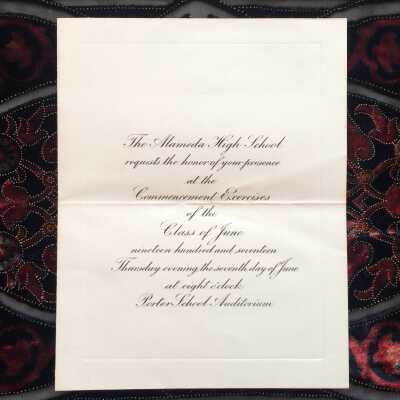 The Alameda High School
requests the honor of your presence
at the
Commencement Exercises
of the
Class of June
nineteen hundred and seventeen
Thursday evening, the seventh day of June
at eight o'clock
Porter School Auditorium